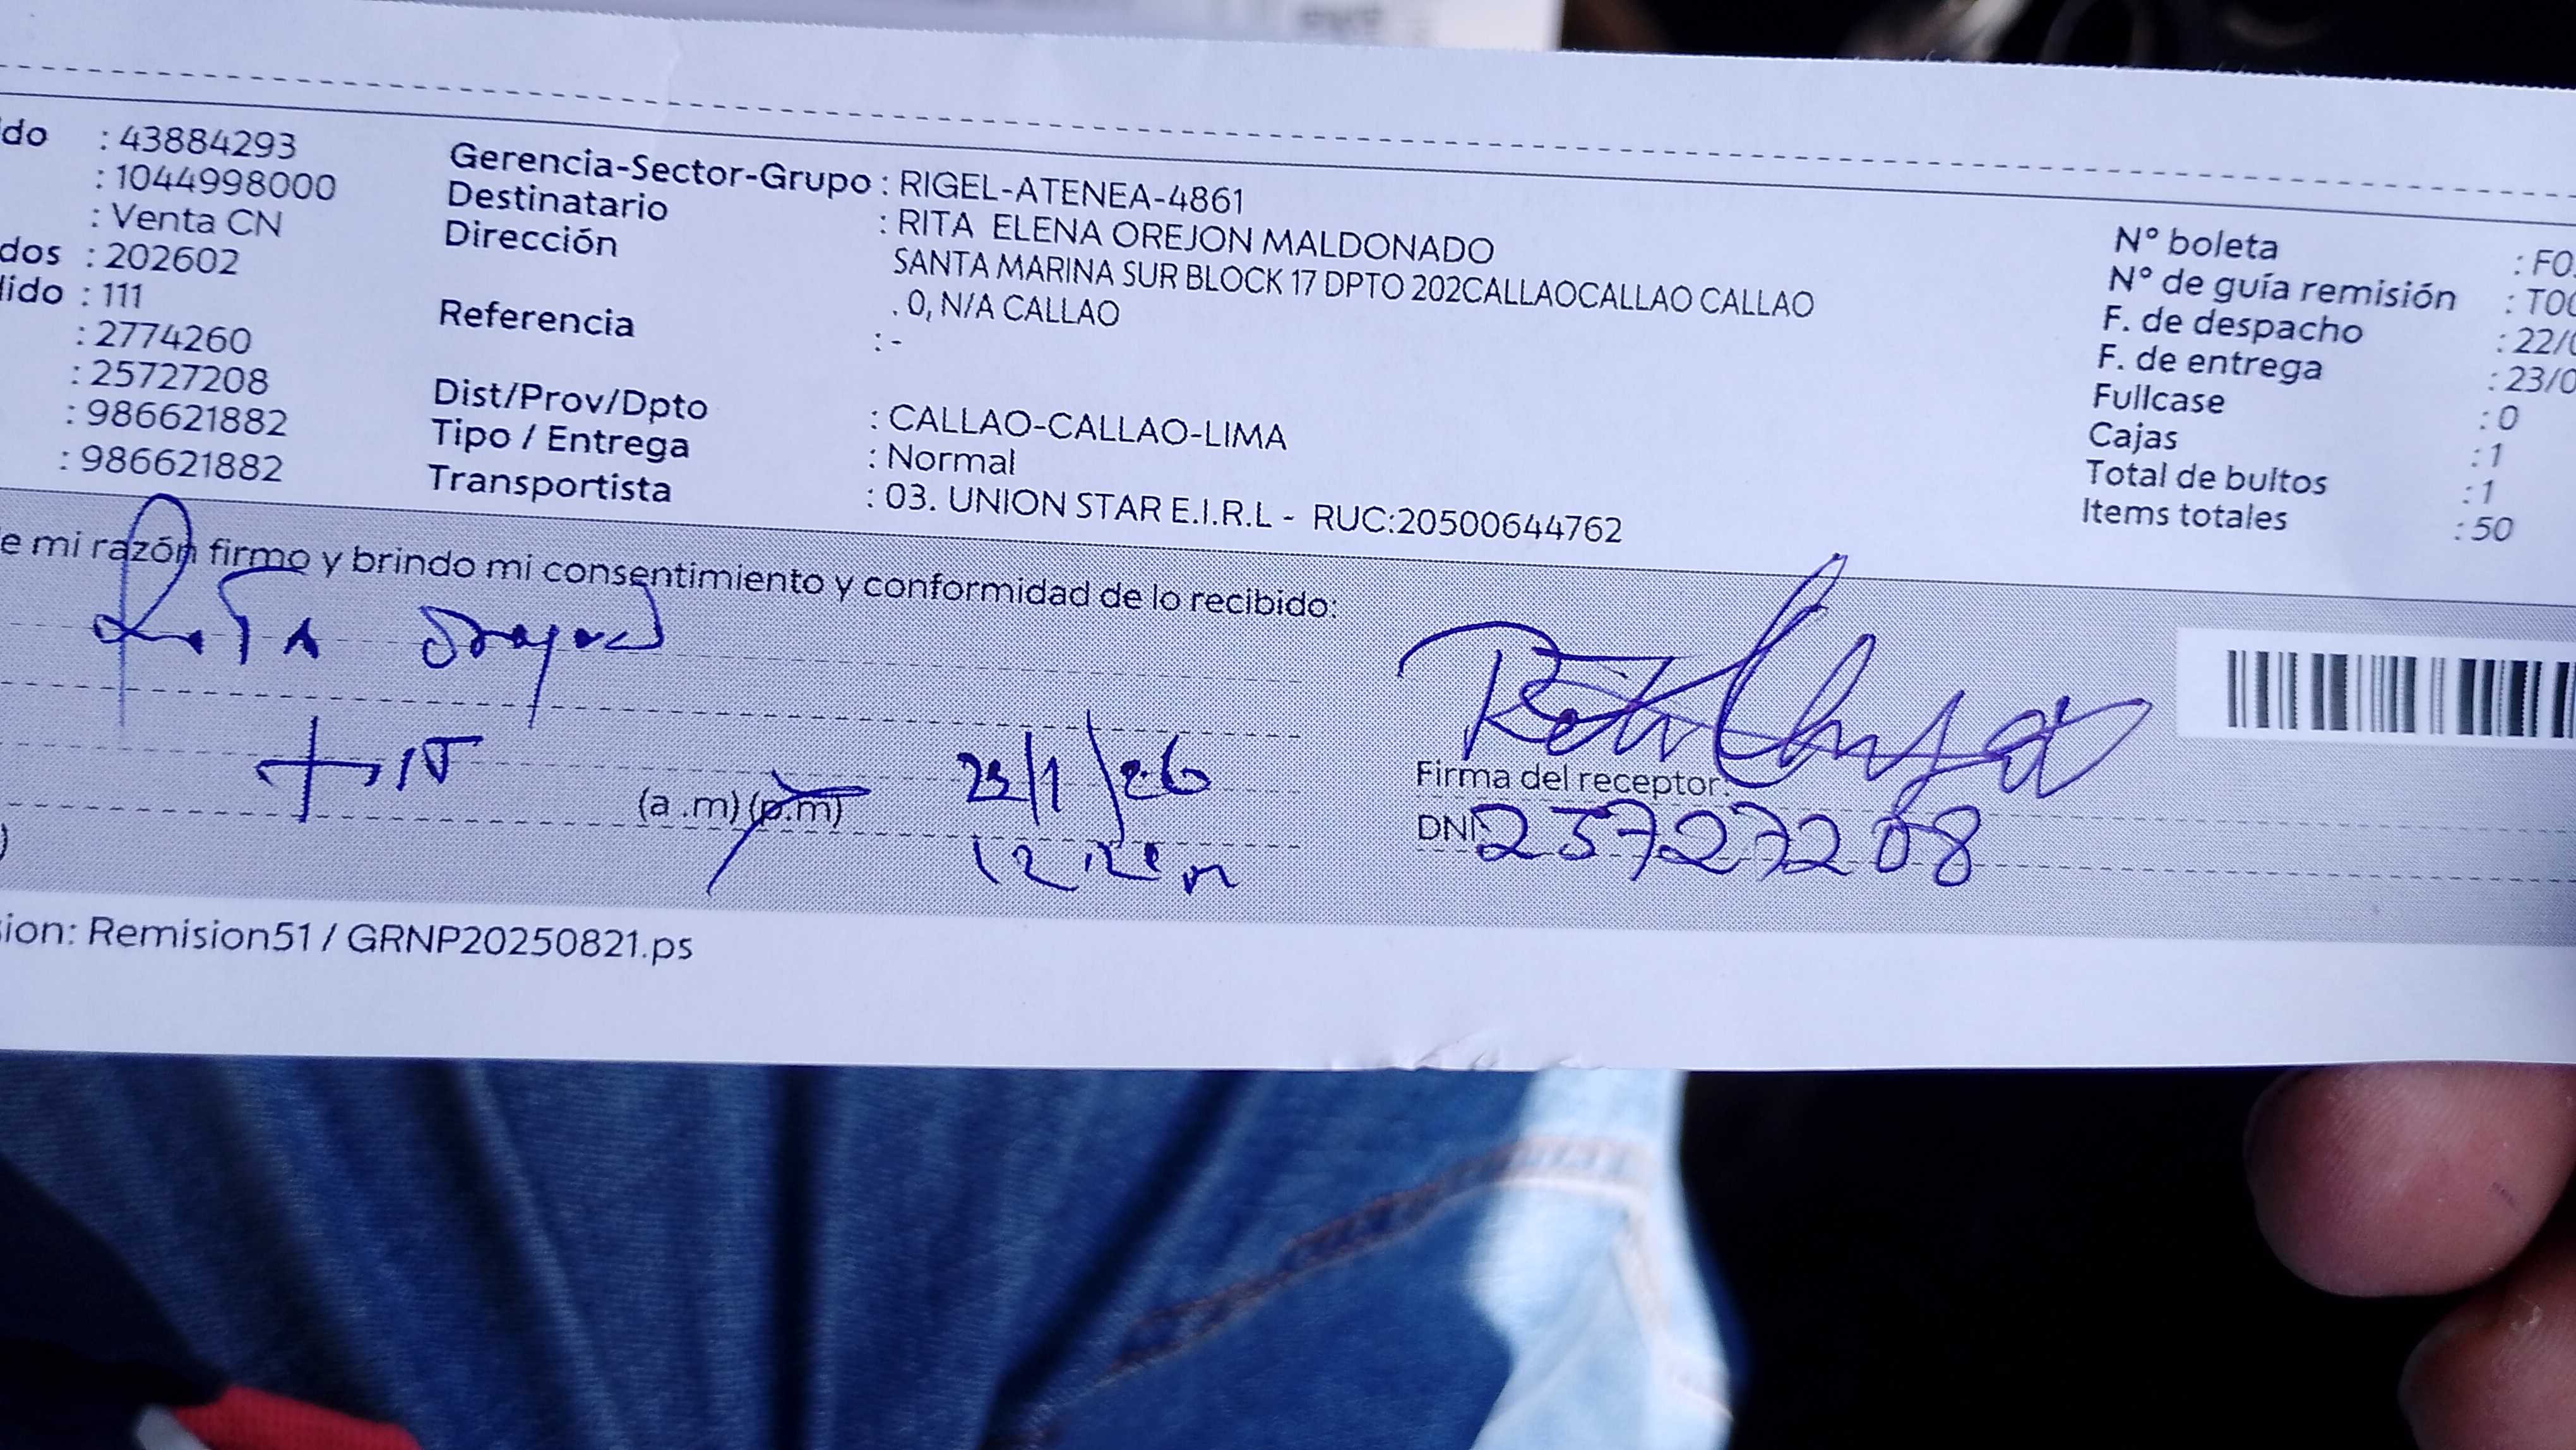 do : 43884293
: 1044998000
: Venta CN
dos : 202602
lido : 111
: 2774260
: 25727208
: 986621882
: 986621882
Gerencia-Sector-Grupo : RIGEL-ATENEA-4861
Destinatario : RITA ELENA OREJON MALDONADO
Dirección SANTA MARINA SUR BLOCK 17 DPTO 202CALLAOCALLAO CALLAO
. 0, N/A CALLAO
Referencia : -
Dist/Prov/Dpto : CALLAO-CALLAO-LIMA
Tipo / Entrega : Normal
Transportista : 03. UNION STAR E.I.R.L - RUC:20500644762
Nº boleta : F0
Nº de guía remisión : T00
F. de despacho : 22/0
F. de entrega : 23/0
Fullcase : 0
Cajas : 1
Total de bultos : 1
Items totales : 50
e mi razón firmo y brindo mi consentimiento y conformidad de lo recibido:
RITA Orejon
(a .m) (p.m) 23/1/26
Firma del receptor:
DNI 25727208
sion: Remision51 / GRNP20250821.ps